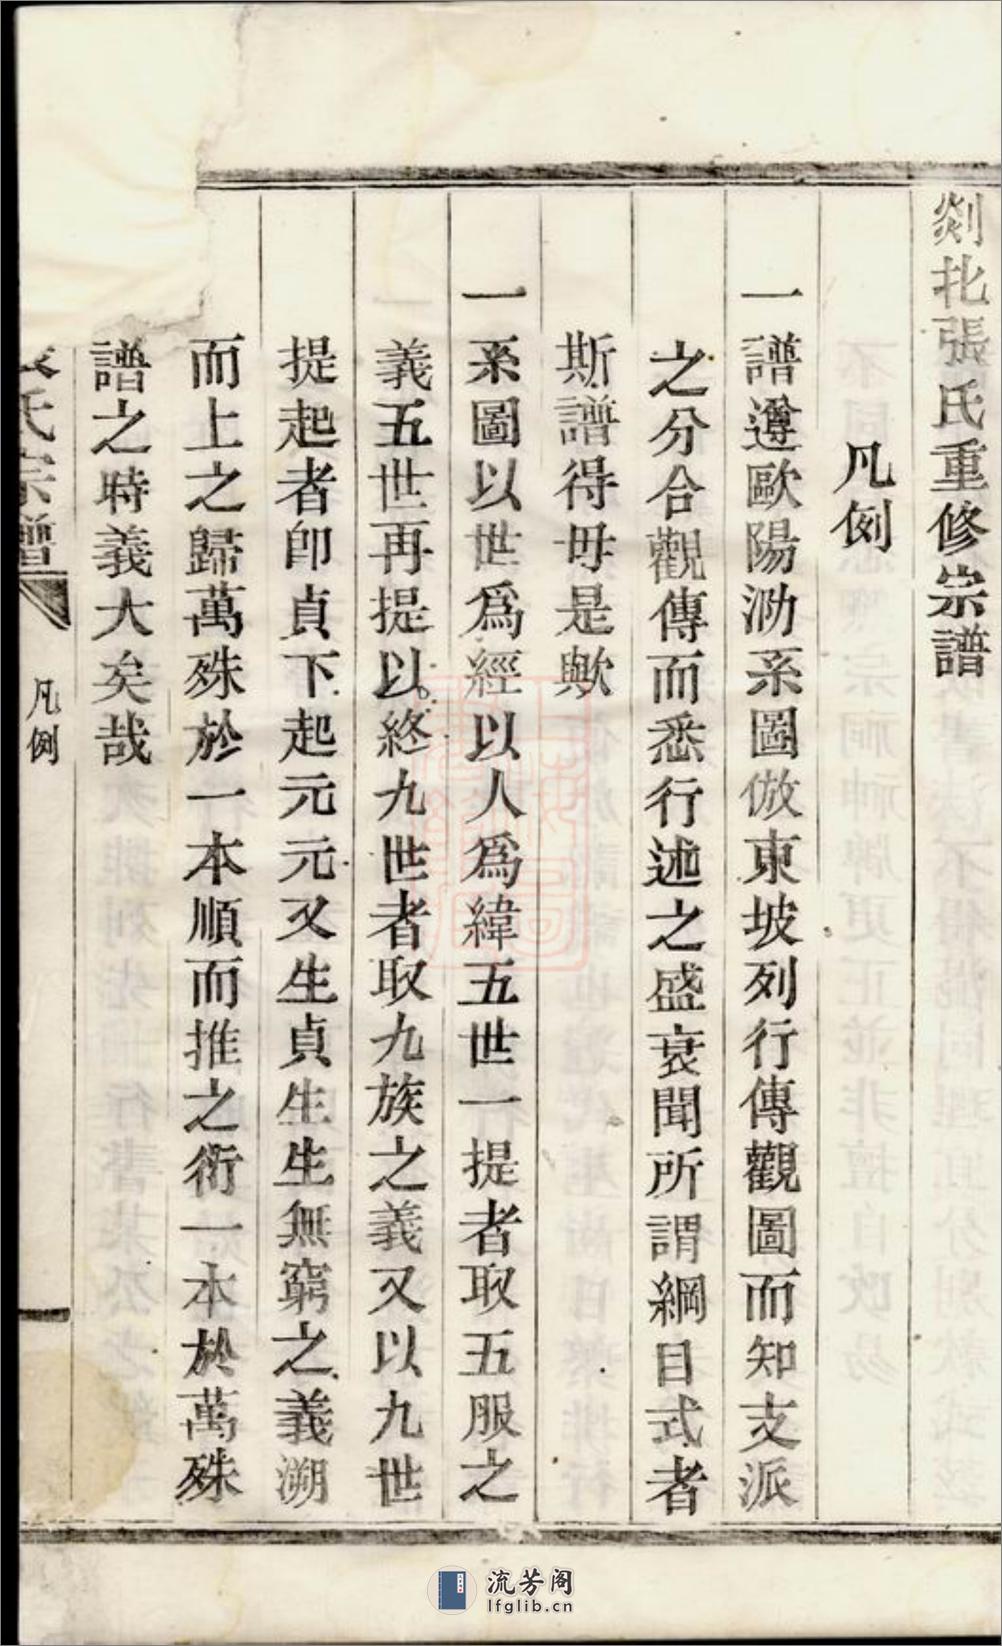 剡北張氏重修宗譜
凡例
一譜遵歐陽泐系圖倣東坡列行傳觀圖而知支派
之分合觀傳而悉行述之盛衰聞所謂綱目式者
斯譜得毋是歟
一系圖以世爲經以人爲緯五世一提者取五服之
義五世再提以終九世者取九族之義又以九世
提起者卽貞下起元元又生貞生生無窮之義溯
而上之歸萬殊於一本順而推之衍一本於萬殊
譜之時義大矣哉
氏宗譜
凡例
一
流芳阁
lfglib.cn